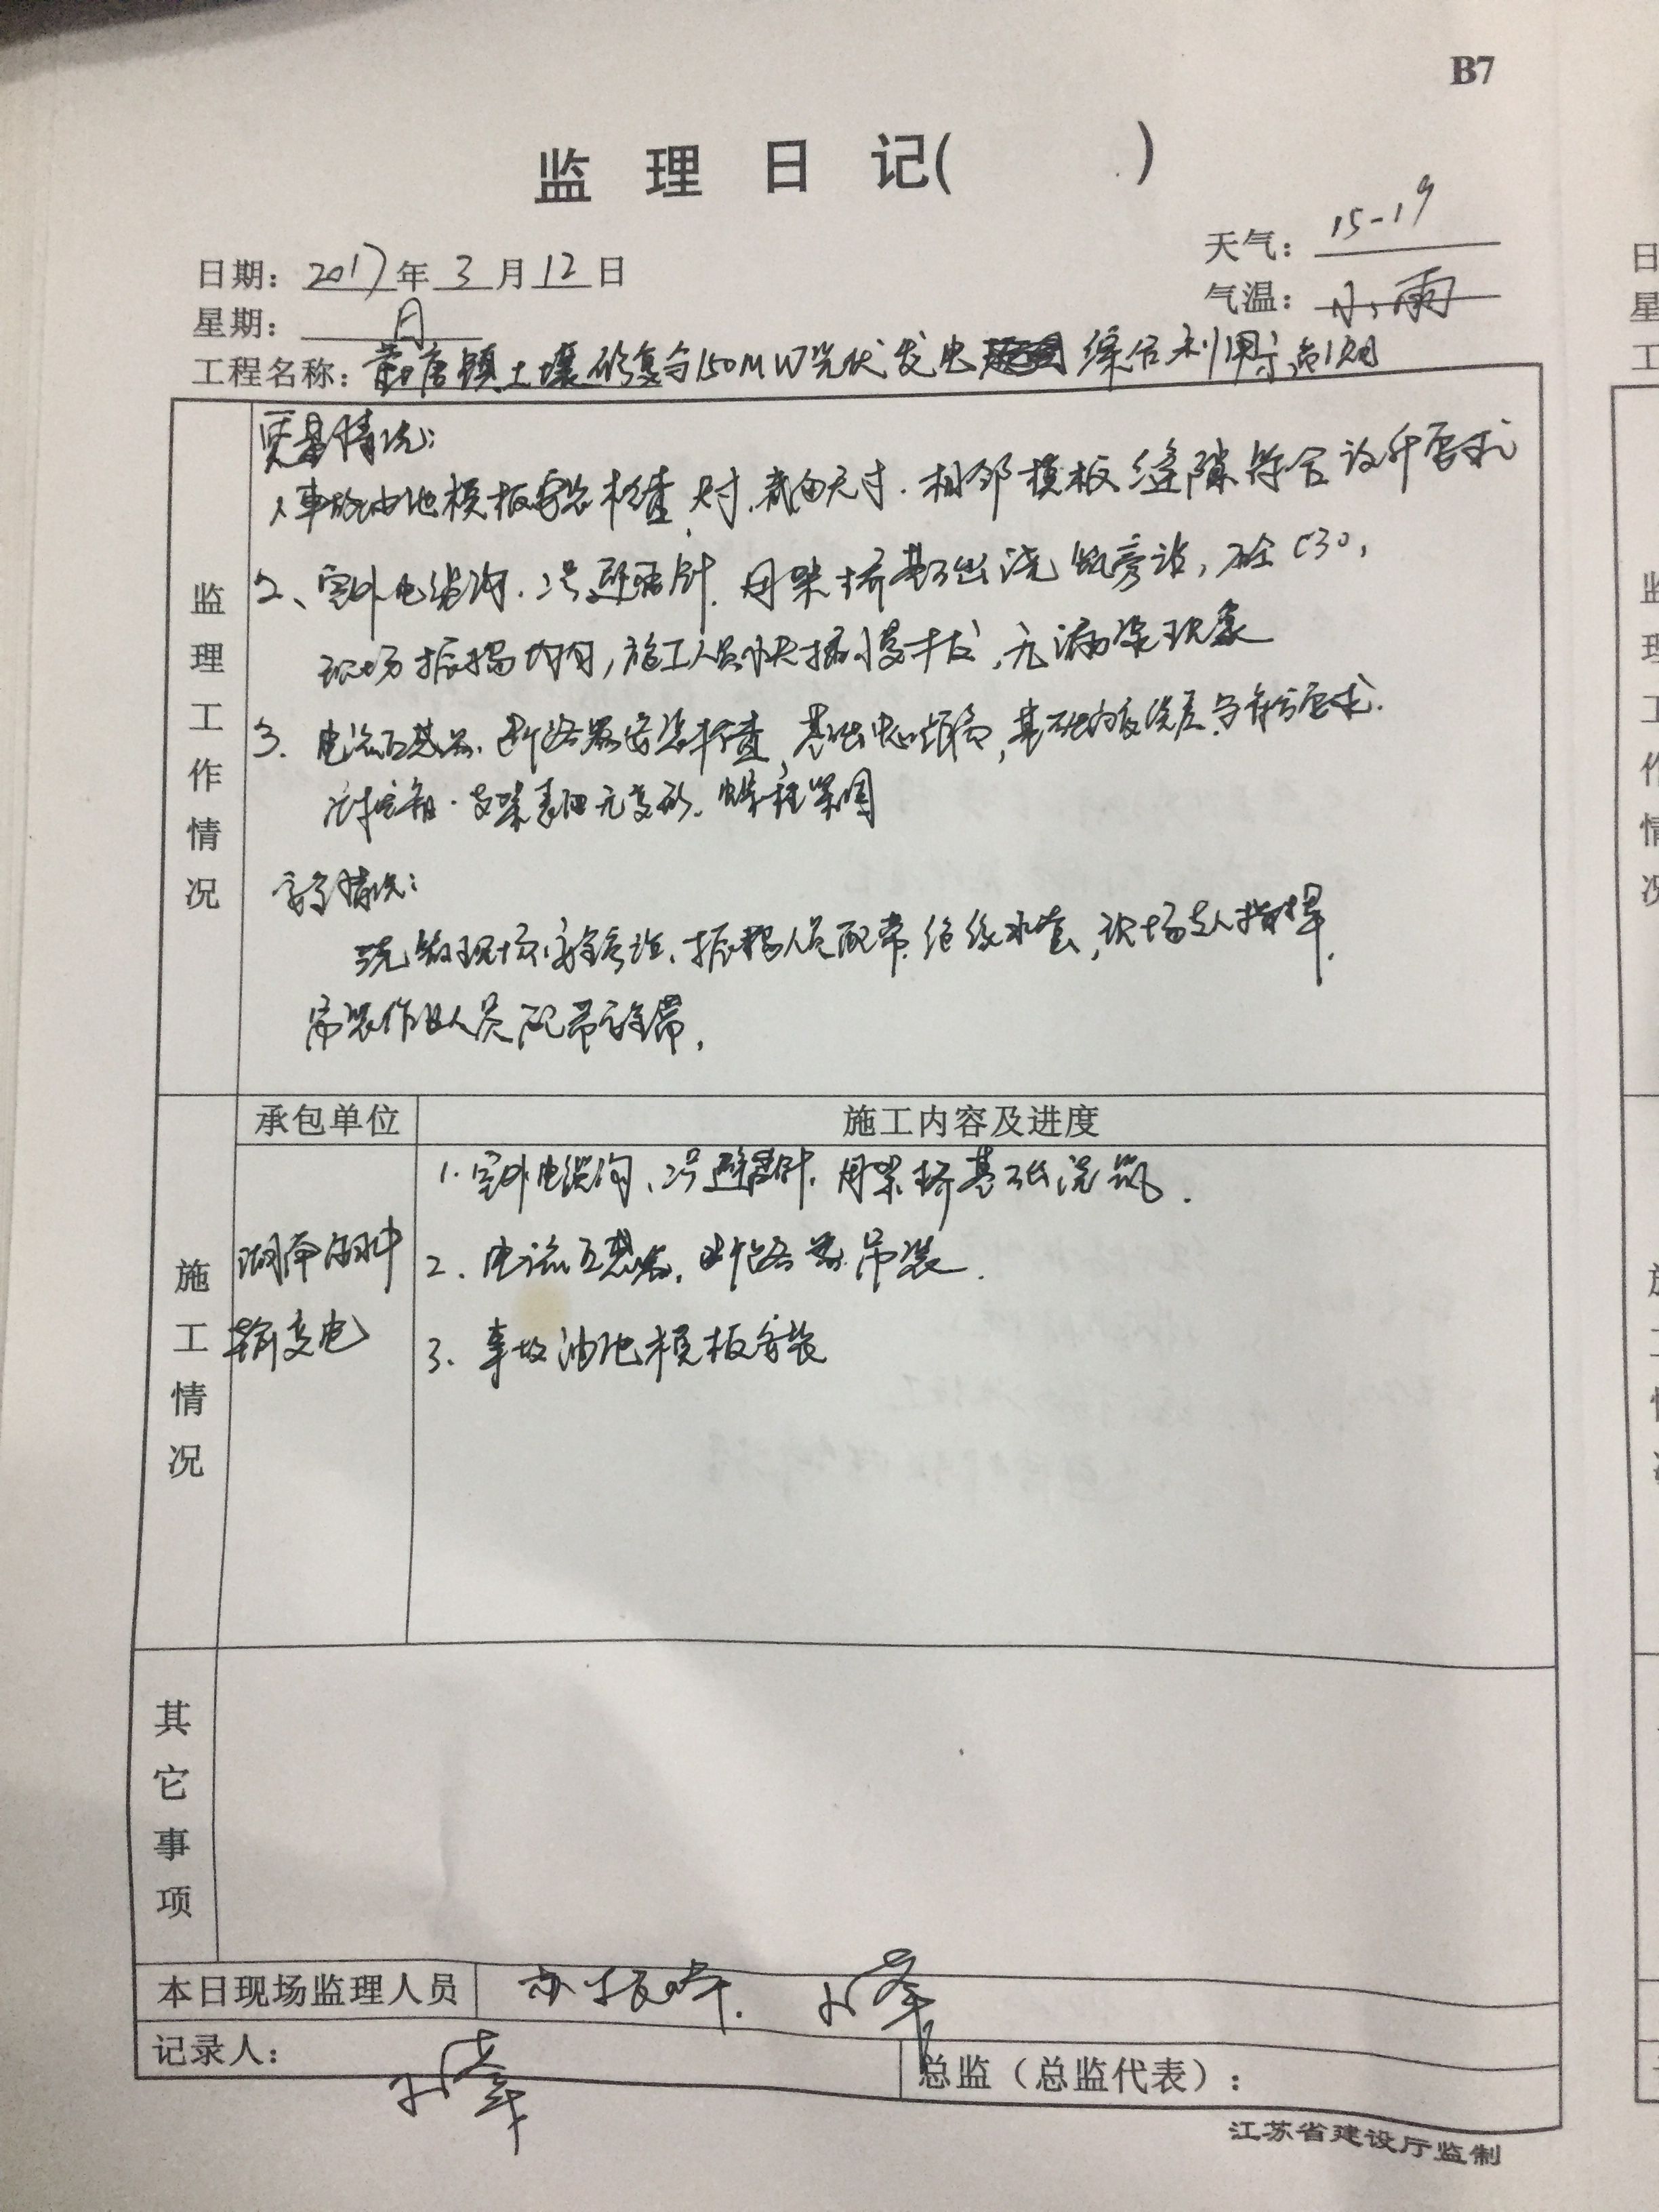 B7
监理日记( )
日期: 2017年3月12日
天气: 15-19
星期: 日
气温: 小雨
工程名称: 唐镇土壤修复与150MW光伏发电 综合利用
监理工作情况
质量情况:
1、事故油池模板安装检查,尺寸,截面尺寸.相邻模板缝隙符合设计要求
2、室外电缆沟.2号避雷针. 桥基础浇筑旁站,砼C30,
现场振捣均匀,施工人员快插慢拔,无漏浆现象
3. 电流互感器.断路器安装检查,基础中心,基础 符合要求.
支架表面无变形. 紧固
安全情况:
浇筑现场安全旁站.振捣人员配带绝缘水套,现场专人指挥.
吊装作业人员配带安全带.
施工情况
承包单位
施工内容及进度
湖南
输变电
1.室外电缆沟、2号避雷针. 桥基础浇筑.
2. 电流互感器.断路器吊装.
3. 事故油池模板安装
其它事项
本日现场监理人员
记录人:
总监(总监代表):
江苏省建设厅监制